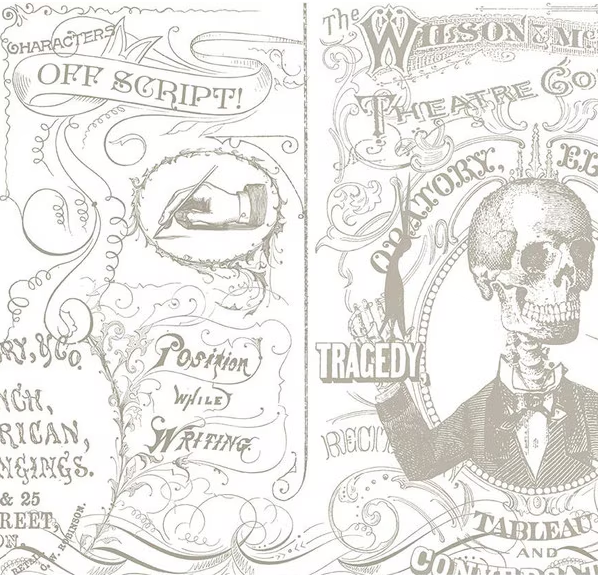 CHARACTERS
OFF SCRIPT!
Position
WHILE
WRITING.
RY, & Co.
NCH,
RICAN,
NGINGS.
& 25
REET,
ON.
O. W. ROBINSON.
The WILSON & MC
THEATRE CO
ORATORY, EL
TRAGEDY,
RECIT
TABLEAU
AND